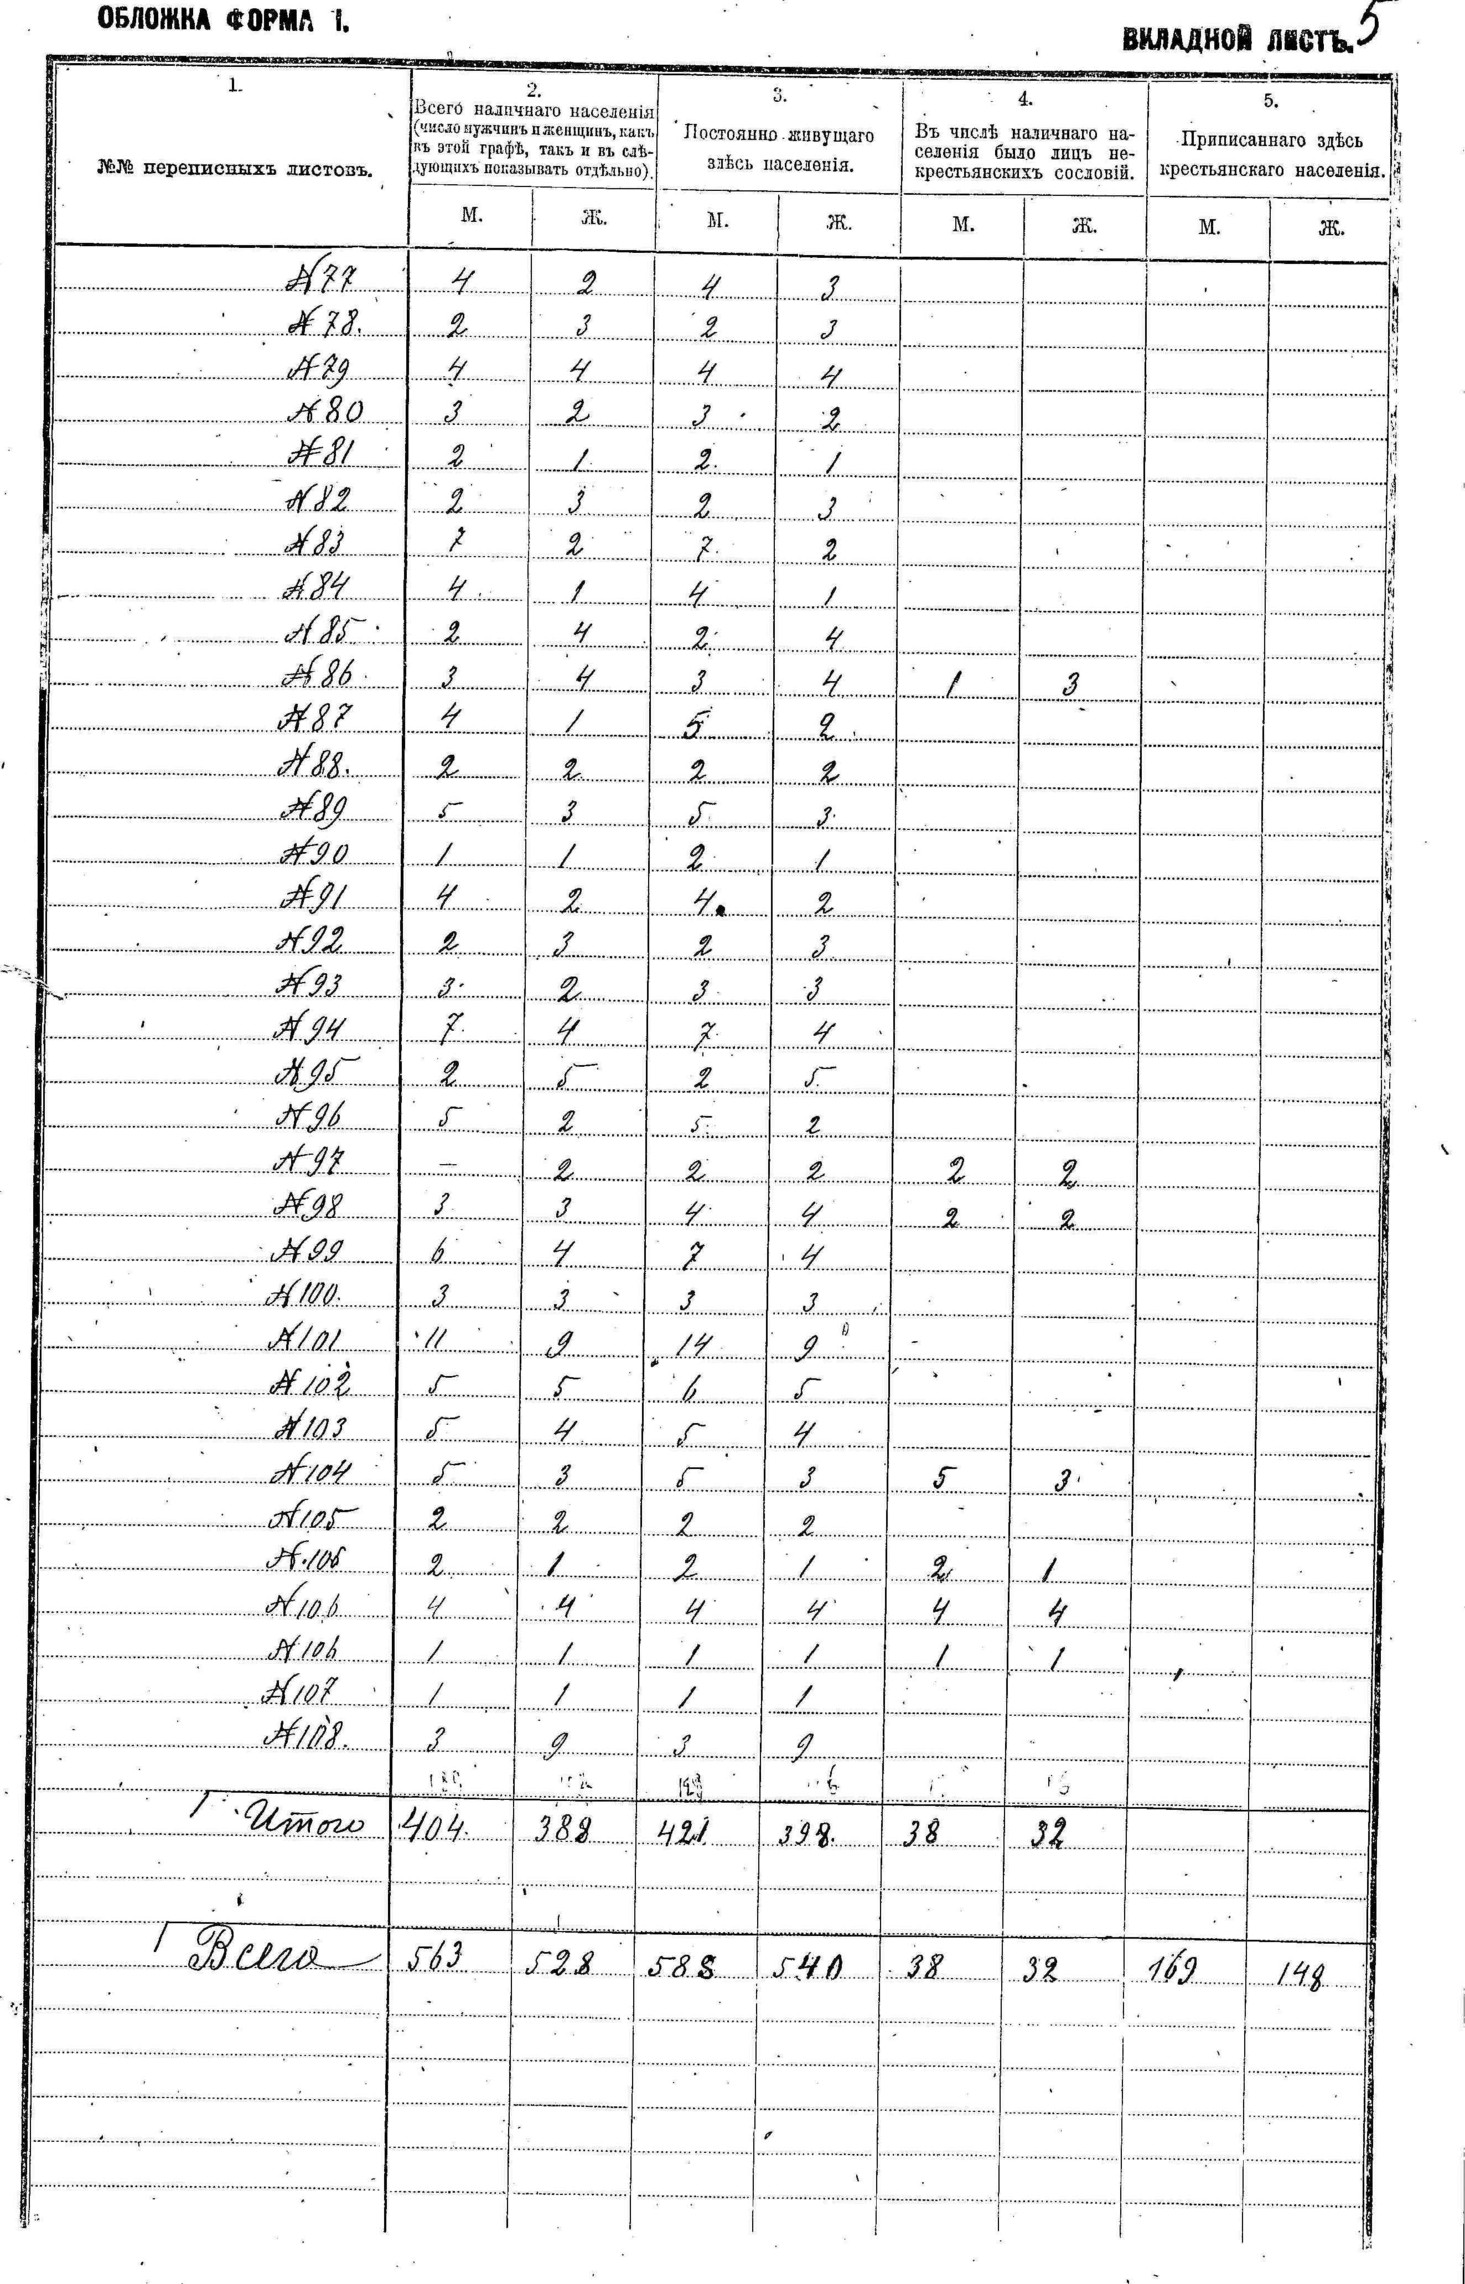 ОБЛОЖКА ФОРМА I.
ВКЛАДНОЙ ЛИСТЪ. 5
1. 2. 3. 4. 5.
№№ переписныхъ листовъ.
Всего наличнаго населенія
(число мужчинъ и женщинъ, какъ
въ этой графѣ, такъ и въ слѣ-
дующихъ показывать отдѣльно).
Постоянно живущаго
здѣсь населенія.
Въ числѣ наличнаго на-
селенія было лицъ не-
крестьянскихъ сословій.
Приписаннаго здѣсь
крестьянскаго населенія.
М. Ж. М. Ж. М. Ж. М. Ж.
N 77 4 2 4 3
N 78. 2 3 2 3
N 79 4 4 4 4
N 80 3 2 3 2
N 81 2 1 2 1
N 82 2 3 2 3
N 83 7 2 7 2
N 84 4 1 4 1
N 85 2 4 2 4
N 86 3 4 3 4 1 3
N 87 4 1 5 2
N 88. 2 2 2 2
N 89 5 3 5 3
N 90 1 1 2 1
N 91 4 2 4 2
N 92 2 3 2 3
N 93 3 2 3 3
N 94 7 4 7 4
N 95 2 5 2 5
N 96 5 2 5 2
N 97 — 2 2 2 2 2
N 98 3 3 4 4 2 2
N 99 6 4 7 4
N 100. 3 3 3 3
N 101 11 9 14 9
N 102 5 5 6 5
N 103 5 4 5 4
N 104 5 3 5 3 5 3
N 105 2 2 2 2
N 106 2 1 2 1 2 1
N 106 4 4 4 4 4 4
N 106 1 1 1 1 1 1
N 107 1 1 1 1
N 108. 3 9 3 9
Итого 404. 388 421 398. 38 32
Всего 563 528 588 540 38 32 169 148